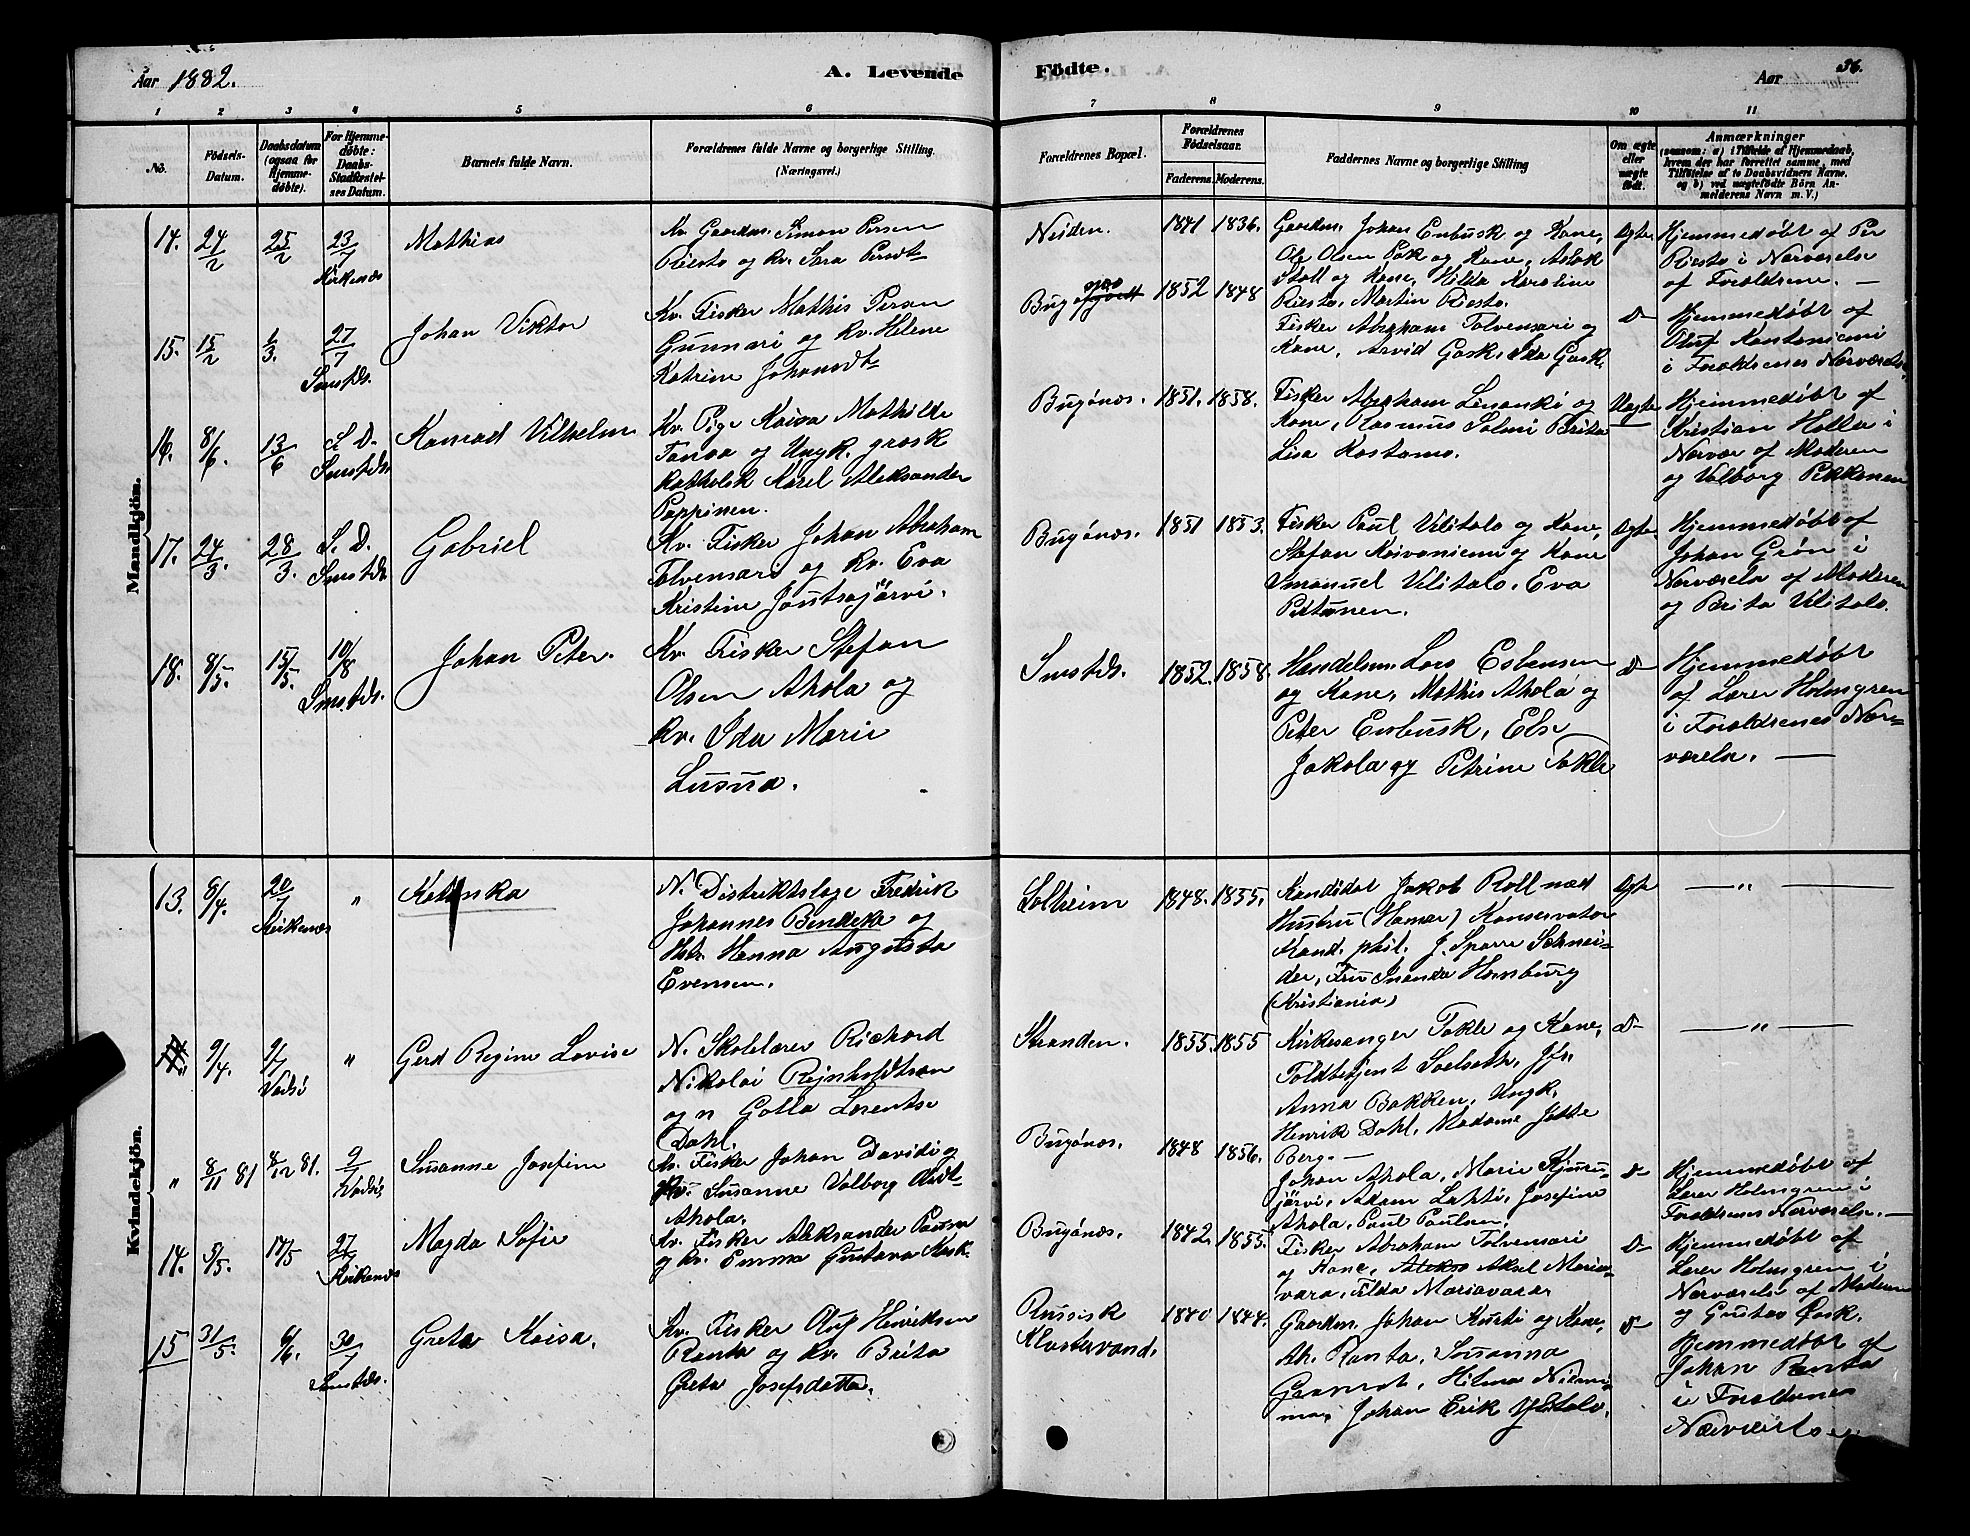 Aar 1882.
A. Levende
Födte.
Aar
36.
1
2
3
4
5
6
7
8
9
10
11
No.
Födsels-
Datum.
Daabsdatum
(ogsaa for
Hjemme-
döbte).
For Hjemme-
döbte:
Daabs-
Stadfæstel-
ses Datum.
Barnets fulde Navn.
Forældrenes fulde Navne og borgerlige Stilling.
(Næringsvei.)
Forældrenes Bopæl.
Forældrenes
Födselsaar.
Faderens.
Moderens.
Faddernes Navne og borgerlige Stilling
Om ægte
eller
uægte
födt.
Anmærkninger
(saasom: a) i Tilfælde af Hjemmedaab,
hvem der har forrettet samme, med
Tilföielse af to Daabsvidners Navne,
og b) ved uægtefödte Börn An-
melderens Navn m. V.)
Mandkjön.
14. 24/2 25/2 23/7 Kirkenæs
Mathias
Kv. Gaardm. Simon Persen
Riesto og kv. Sara Persdt.
Neiden. 1841 1836.
Gaardm. Johan Enbusk og Kone,
Ole Olsen og Kone, Aslak
og Kone, Hilda Karoline
Riesto, Martin Riesto.
Ægte
Hjemmedøbt af Per
Riesto i Nærværelse
af Forældrene. —
15. 15/2 1/3. 27/7 Smstds.
Johan Viktor
Kv. Fisker Mathis Persen
Gunnari og kv. Helene
Katrine Johansdt.
1852 1848
Fisker Abraham Tolvensari og
Kone, Arvid Gask, Ida Gask.
D
Hjemmedøbt af
Oluf Kantoniemi
i Forældrenes Nærværelse.
16. 8/6. 13/6 S. D. Smstds.
Konrad Vilhelm
Kv. Pige Kaisa Mathilde
Tanva og Ungk. græsk
katholsk Karel Aleksander
Pappinen.
Bugönæs. 1851. 1858.
Fisker Abraham Linanki og
Kone, Rasmus Salmi Brita
Lisa Kostamo.
Uægte
Hjemmedøbt af
Kristian Holla i
Nærvær af Moderen
og Valborg Pikkinen
17. 24/3. 28/3. S. D. Smstds.
Gabriel
Kv. Fisker Johan Abraham
Tolvensari og kv. Eva
Kristine Jontsajärvi.
Bugönæs. 1851 1853.
Fisker Paul Vilitalo og Kone,
Stefan Koivuniemi og Kone
Emanuel Vilitalo, Eva
Pittunen.
Ægte
Hjemmedøbt af
Johan Grön i
Nærværelse af Moderen
og Brita Vilitalo.
18. 8/5. 15/5. 10/8 Smstds.
Johan Peter.
Kv. Fisker Stefan
Olsen Ahola og
kv. Ida Marie
Lusua.
Smstds. 1852. 1858.
Handelsm. Lars Esbensen
og Kone, Mathis Ahola og
Peter Enbusk, Else
Jakola og Petrine Takle
D
Hjemmedøbt
af Lærer Holmgren
i Forældrenes Nær-
værelse. —
Kvindekjön.
13. 6/4. 20/7 Kirkenæs "
Katinka
N. Distriktslæge Fredrik
Johannes Bendeke og
Hstr. Hanna Augusta
Evensen.
Solheim 1848. 1855.
Kandidat Jakob Roll med
Hustru (Hamar) Konservator
Kand. phil. J. Sparre Schnei-
der, Fru Inanda Homburg
(Kristiania)
Ægte
— " —
9/4. 9/7 Vadsö "
Gerd Regine Lovise
N. Skolelærer Richard
Nikolai Reinholdtsen
og n Galla Lorentse
Dahl.
Stranden. 1855. 1855
Kirkesanger Takle og Kone,
Toldbetjent Soelseth, Jfr.
Anna Bakken, Ungk.
Henrik Dahl, Madame Jette
Berg. —
D
— " —
" 8/11 81 8/12 81. 9/7 Vadsö
Susanne Josefine
Kv. Fisker Johan Davidi og
kv. Susanne Valborg Aidt.
Ahola.
Bugönæs. 1848 1856.
Johan Ahola, Marie Kjæru-
järvi, Adam Lahti, Josefine
Ahola, Paul Paulsen.
D
Hjemmedøbt af
Lærer Holmgren i
Forældrenes Nærværelse. —
14. 5/5. 17/5 27/7 Kirkenæs
Magda Sofie
Kv. Fisker Aleksander Pauna
og kv. Emma Gustava Kask
Bugönæs. 1842. 1855.
Fisker Abraham Tolvensari
og Kone, Aksel Maria-
vara, Tilda Mariavara
D
Hjemmedøbt af
Lærer Holmgren i
Nærværelse af Moderen
og Gustav Gask.
15 31/5. 6/6. 30/7 Smstds.
Greta Kaisa.
Kv. Fisker Oluf Henriksen
Ranta og kv. Brita
Greta Josefsdatter.
Russisk
Klostervand.
1840 1844.
Gaardm. Johan Kurti og Kone,
Ah. Ranta, Susanna
Hilma Niemi-
Johan Erik
D
Hjemmedøbt af
Johan Ranta
i Forældrenes
Nærværelse.